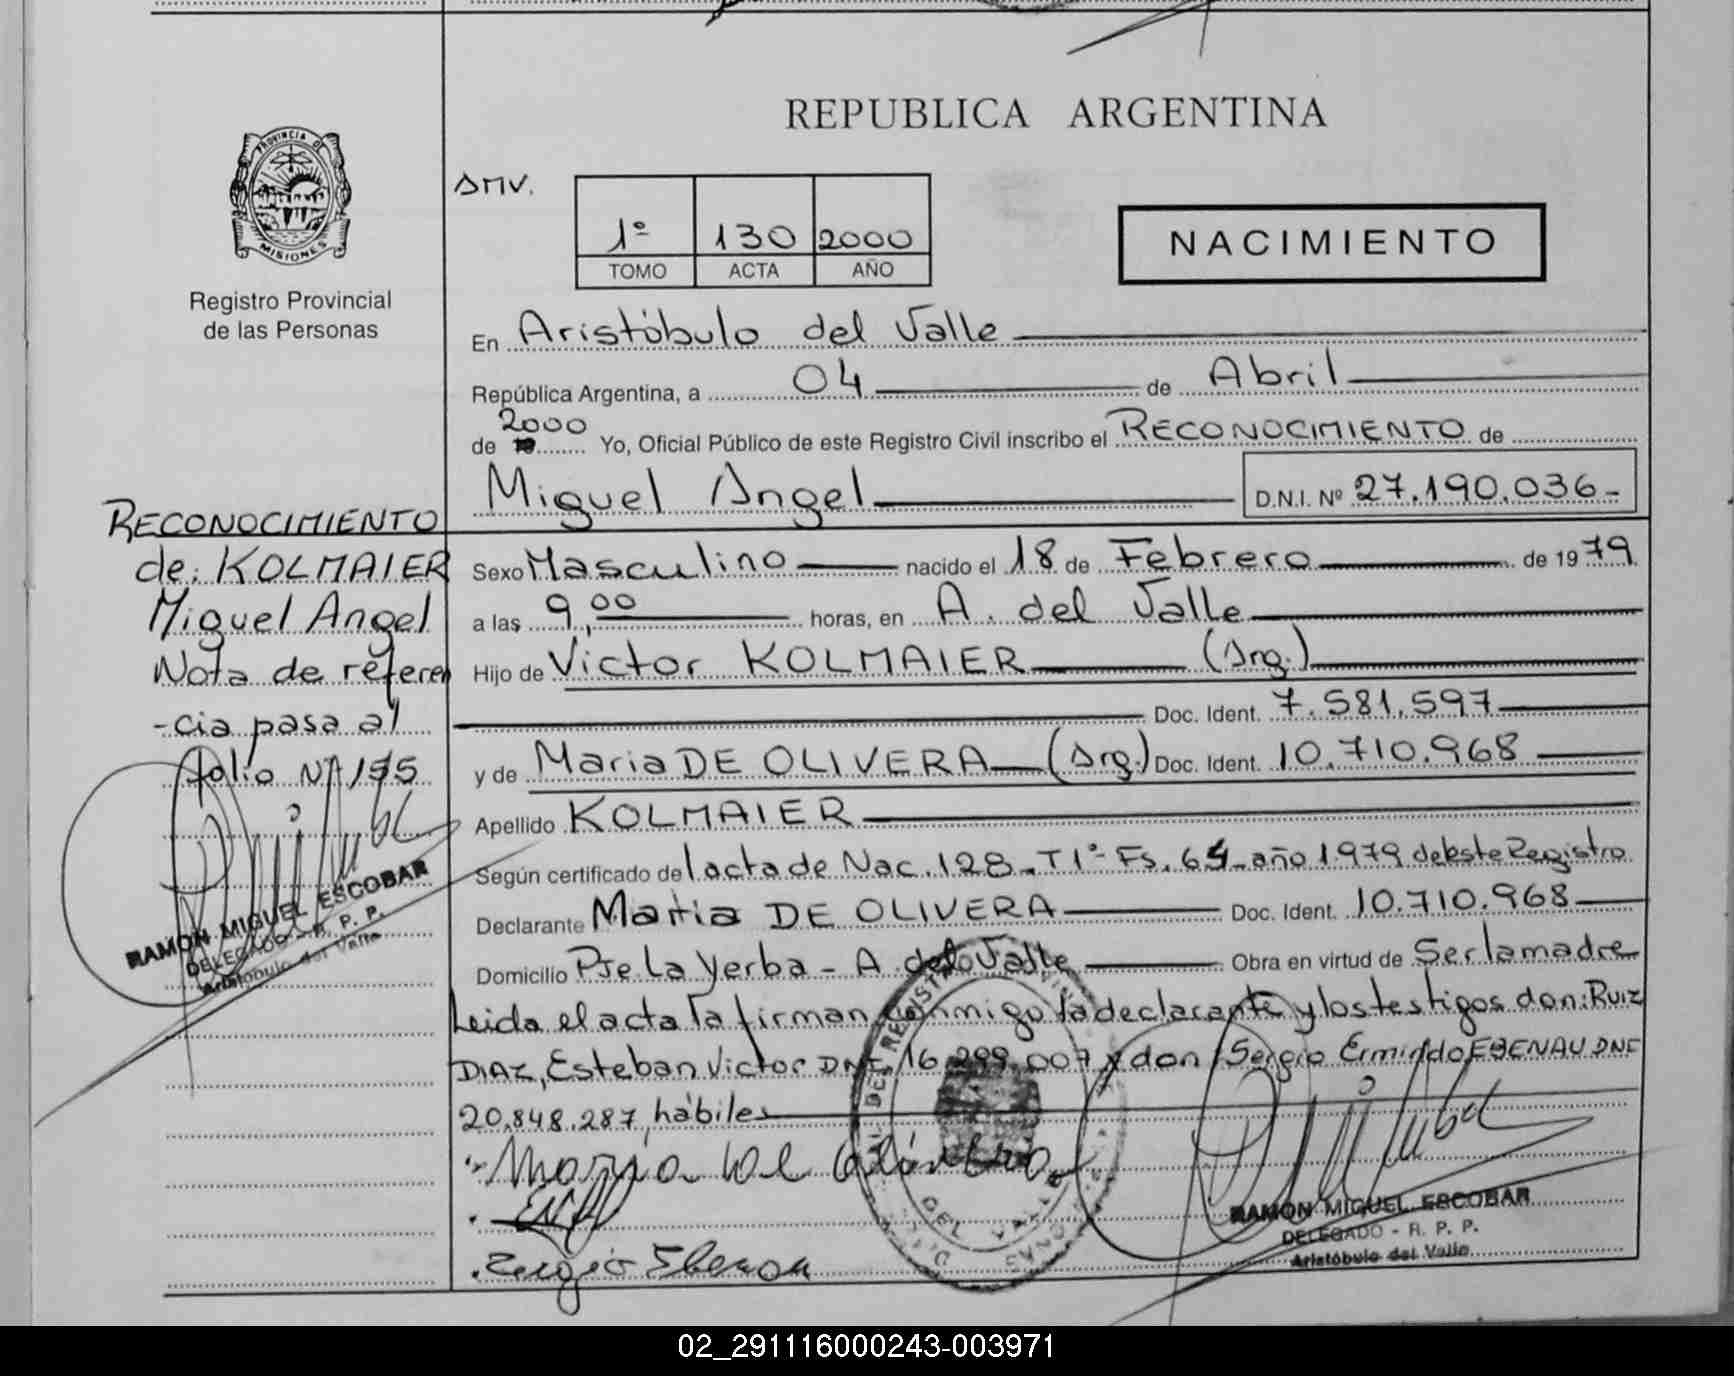 REPUBLICA ARGENTINA
PROVINCIA DE
MISIONES
Registro Provincial
de las Personas
SMV.
1º 130 2000
TOMO ACTA AÑO
NACIMIENTO
En Aristóbulo del Valle
República Argentina, a 04 de Abril
de 2000 Yo, Oficial Público de este Registro Civil inscribo el RECONOCIMIENTO de
Miguel Angel D.N.I. Nº 27.190.036-
Sexo Masculino nacido el 18 de Febrero de 1979
a las 9,00 horas, en A. del Valle
Hijo de Victor KOLMAIER (Arg.)
Doc. Ident. 7.581.597
y de Maria DE OLIVERA (Arg.) Doc. Ident. 10.710.968
Apellido KOLMAIER
Según certificado de l acta de Nac. 128- T1º- Fs. 64- año 1.979 de este Registro
Declarante Maria DE OLIVERA Doc. Ident. 10.710.968
Domicilio Pje La Yerba - A del Valle Obra en virtud de Ser la madre
Leida el acta la firman conmigo la declarante y los testigos don: RUIZ
DIAZ, Esteban Victor DNI 16.299.007 y don Sergio Ermindo EBENAU DNI
20.848.287, hábiles
RAMON MIGUEL ESCOBAR
DELEGADO - R. P. P.
Aristóbulo del Valle
Sergio Ebenau
RECONOCIMIENTO
de: KOLMAIER
Miguel Angel
Nota de referen
-cia pasa al
folio Nº 155
RAMON MIGUEL ESCOBAR
DELEGADO - R. P. P.
Aristóbulo del Valle
02_291116000243-003971